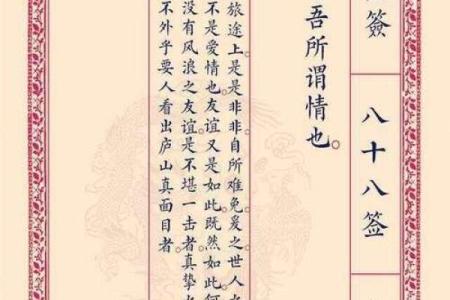 簽
八十八签
吾所谓情也。
旅途上是是非非自所难免。爰之世人
不是爱情也。友谊又是如此。既然如此何
没有风浪之友谊。是不堪一击者。真挚
不外乎要人看出庐山真面目者。